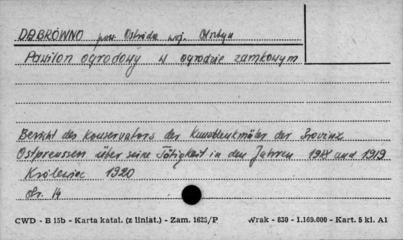 DĄBRÓWNO pow. Ostróda woj. Olsztyn
Pawilon ogrodowy w ogrodzie zamkowym
Bericht des Konservators der Kunstdenkmäler der Provinz
Ostpreussen über seine Tätigkeit in den Jahren 1918 und 1919
Królewiec 1920
str. 14
CWD - B 15b - Karta katal. (z liniat.) - Zam. 1623/P Wrak - 830 - 1.169.000 - Kart. 5 kl. A1